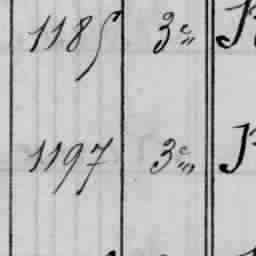 1185 3e
1197 3e